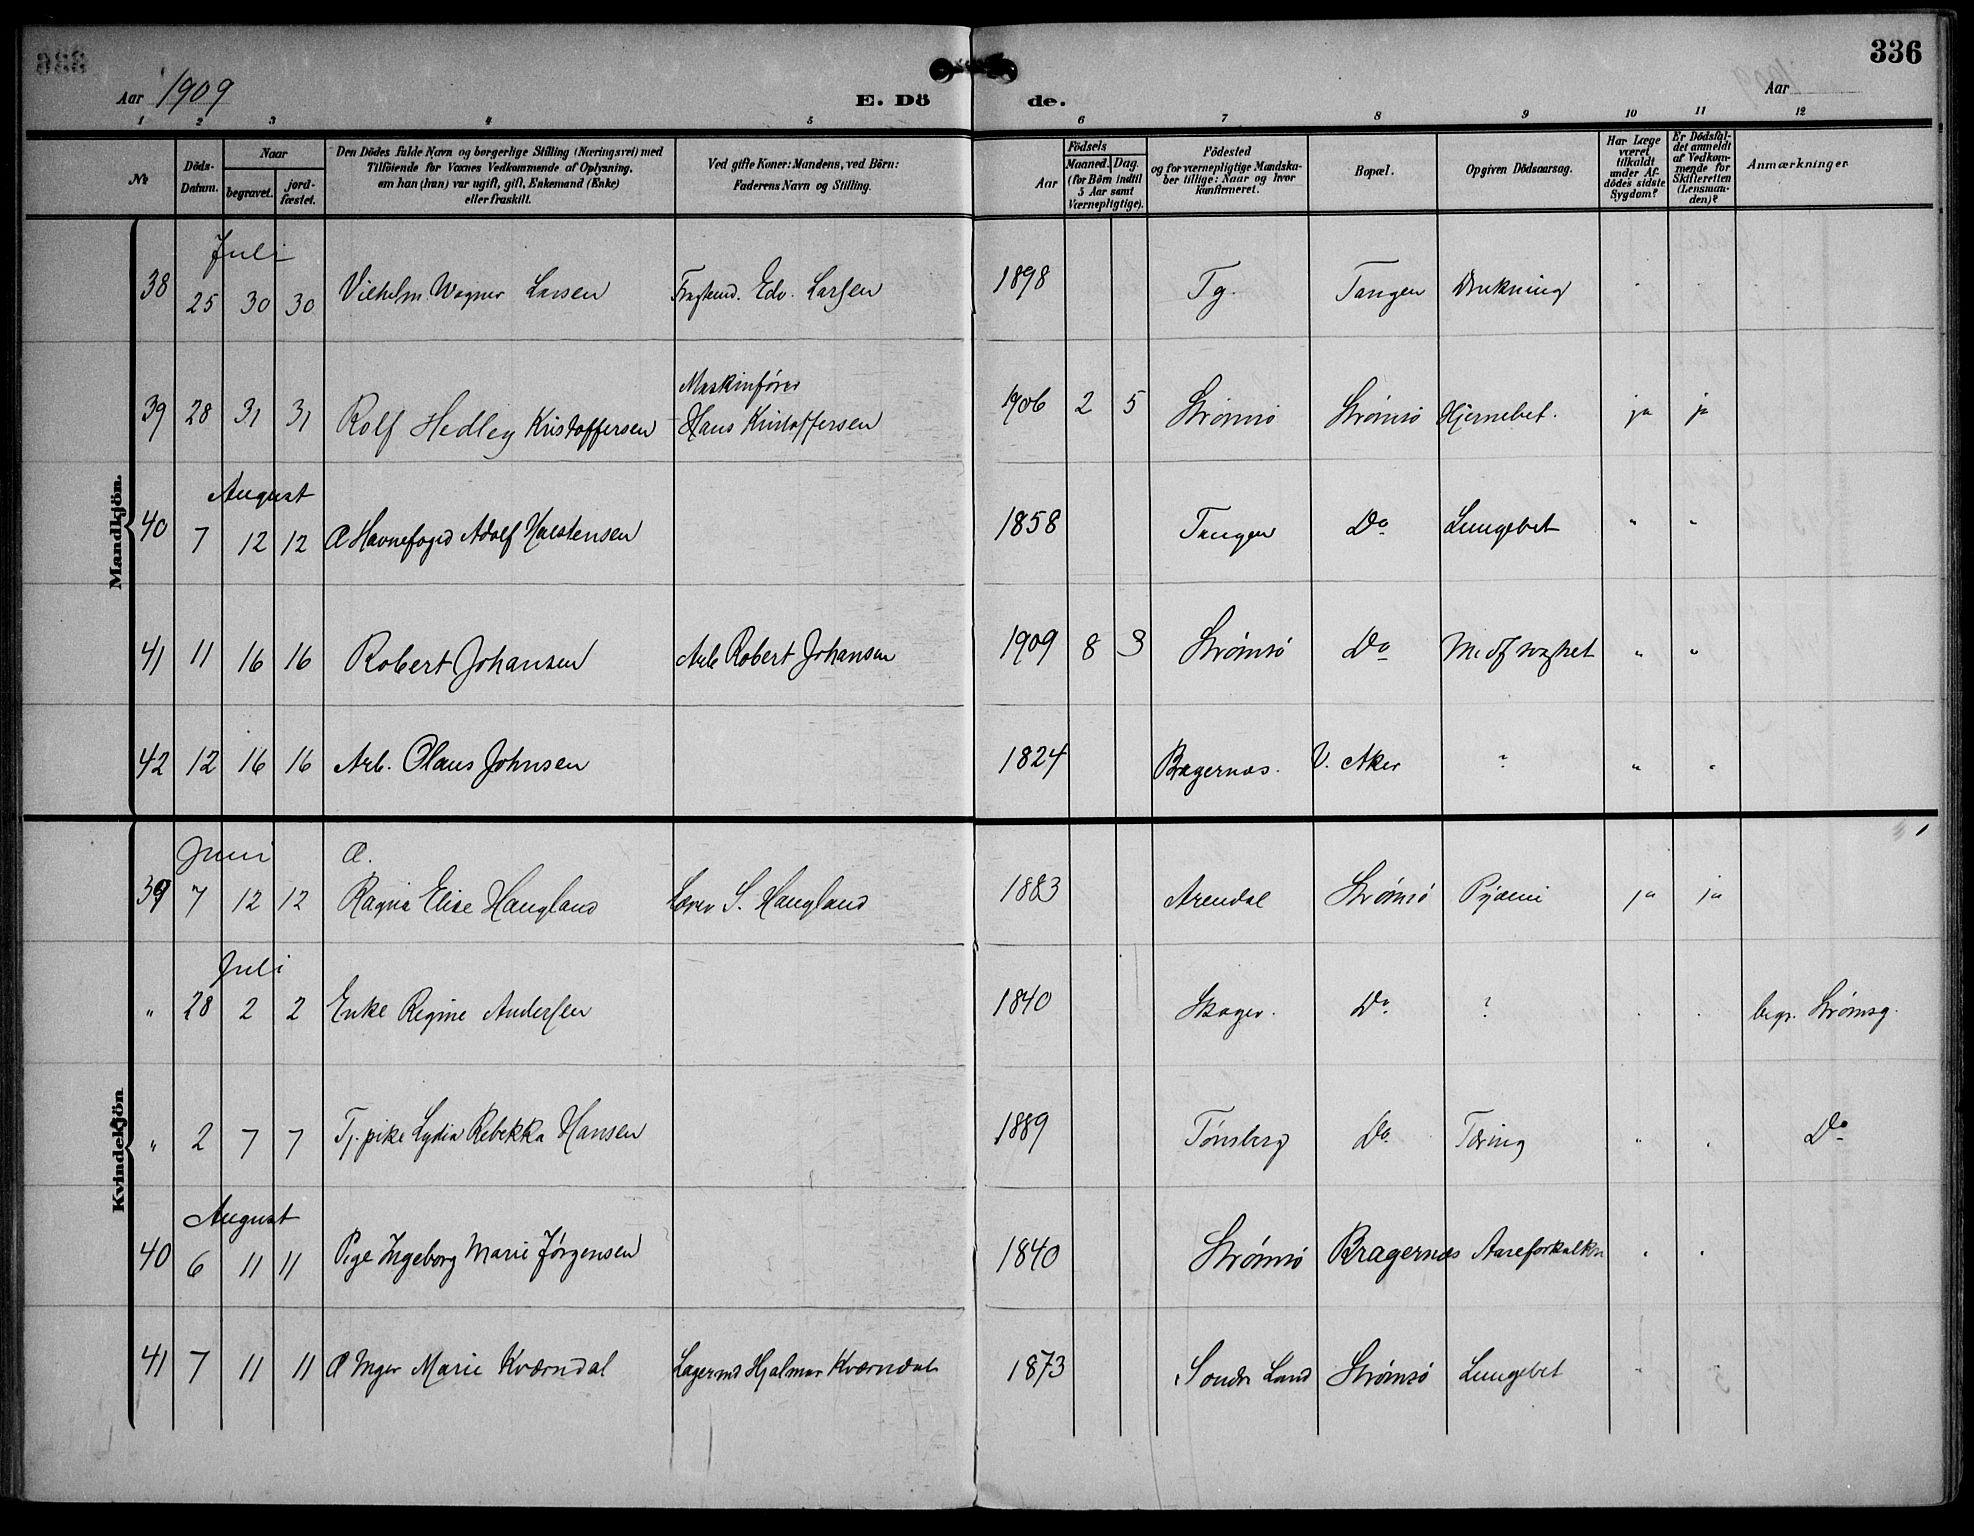 336
Aar 1909
E. Dö de.
Aar
1 2 3 4 5 6 7 8 9 10 11 12
№
Döds-Datum.
Naar
begravet.
jord-fæstet.
Den Dödes fulde Navn og borgerlige Stilling (Næringsvei) med
Tilföiende for Voxnes Vedkommende af Oplysning,
om han (hun) var ugift, gift, Enkemand (Enke)
eller fraskilt.
Ved gifte Koner: Mandens, ved Börn:
Faderens Navn og Stilling.
Födsels
Aar
Maaned. Dag.
(for Börn indtil
5 Aar samt
Værnepligtige).
Födested
og for værnepligtige Mandska-
ber tillige: Naar og hvor
konfirmeret.
Bopæl.
Opgiven Dödsaarsag.
Har Læge
været
tilkaldt
under Af-
dödes sidste
Sygdom?
Er Dödsfal-
det anmeldt
af Vedkom-
mende for
Skifteretten
(Lensman-
den)?
Anmærkninger
Mandkjön.
Juli
38 25 30 30 Vilhelm Wagner Larsen Edv. Larsen 1898 Tg. Tangen Drukning
Maskinfører
39 28 31 31 Rolf Hedley Kristoffersen Hans Kristoffersen 1906 2 5 Strømsø Strømsø Hjernebet. ja ja
August
40 7 12 12 Havnefoged Adolf Halstensen 1858 Tangen Do Lungebet " "
41 11 16 16 Robert Johansen Arb Robert Johansen 1909 8 3 Strømsø Do Medf svaghet " "
42 12 16 16 Arb. Olaus Johnsen 1824 Bragernæs. V. Aker ? " "
Kvindekjön
Juni
39 7 12 12 Ragna Elise Haugland Lærer S. Haugland 1883 Arendal Strømsø Pyæmi ja ja
Juli
" 28 2 2 Enke Regine Andersen 1840 Skoger. Do ? begr. Strømsg.
" 2 7 7 Tj. pike Lydia Rebekka Hansen 1889 Tønsberg Do Tæring " " Do
August
40 6 11 11 Pige Ingeborg Marie Jørgensen 1840 Strømsø Bragernæs Aareforkalkn " "
41 7 11 11 Inger Marie Kværndal Lagermd Hjalmar Kværndal 1873 Søndr Land Strømsø Lungebet "